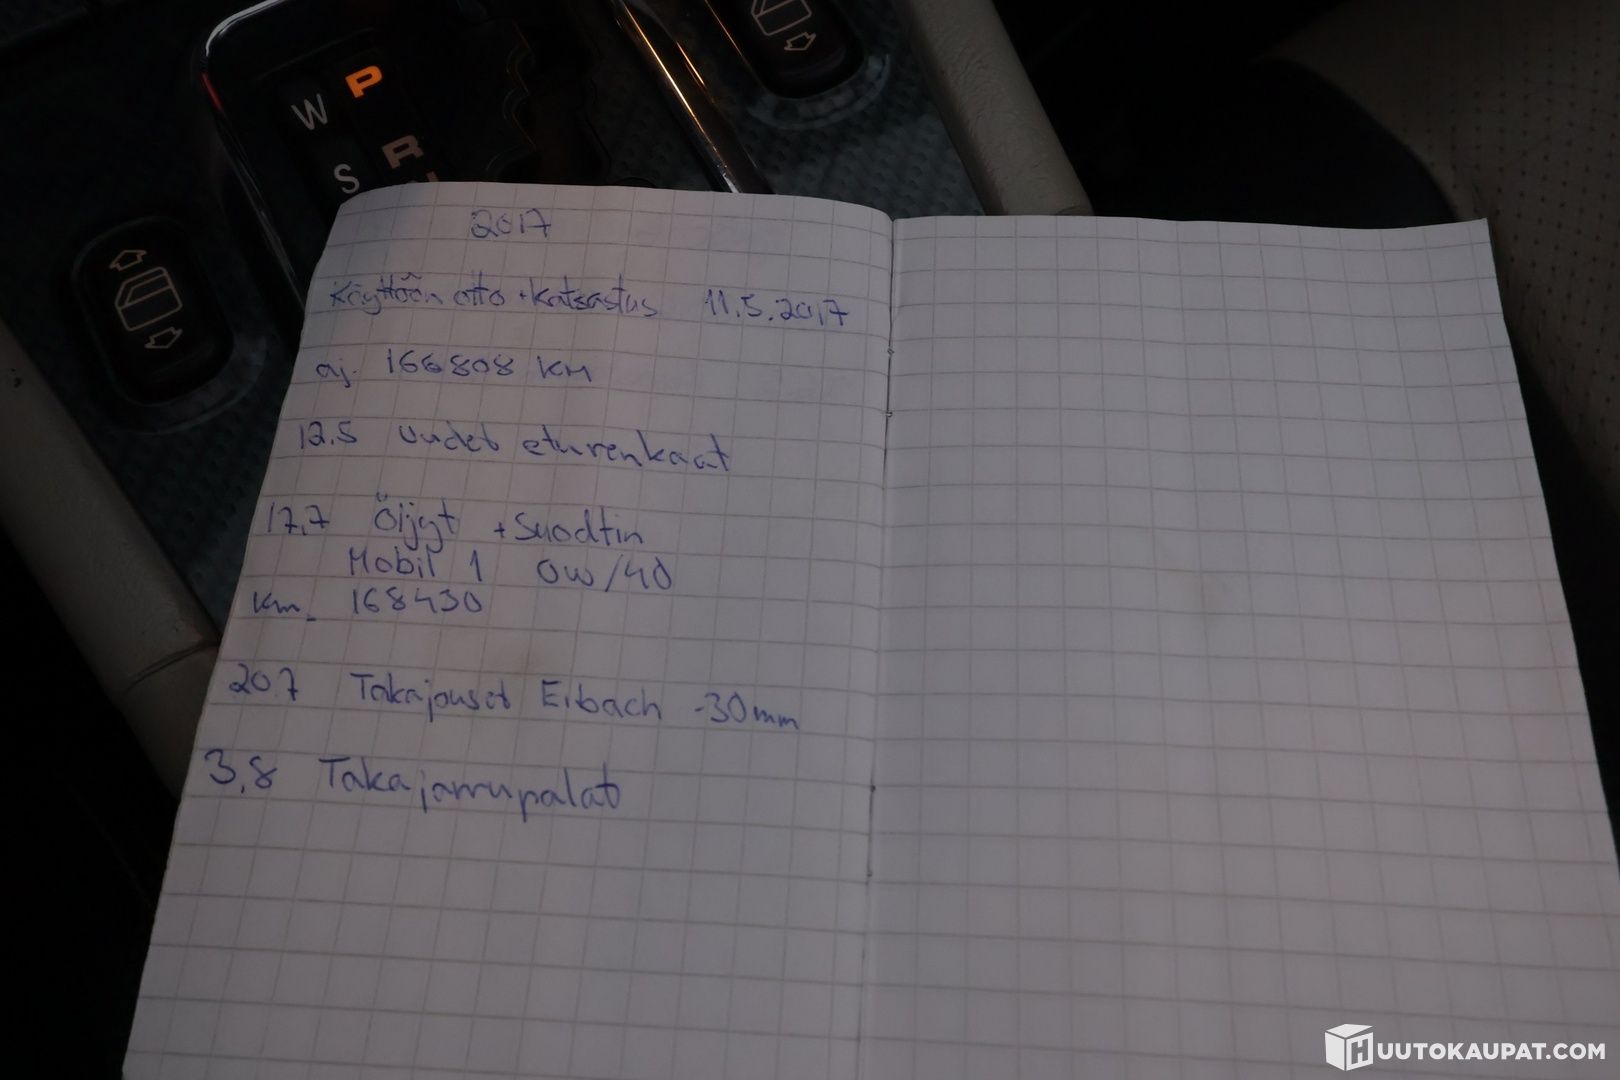 P
W
R
S
2017
Käyttöön otto + katsastus 11.5.2017
aj. 166808 KM
12.5 uudet eturenkaat
17.7 Öljyt + Suodtin
Mobil 1 0W/40
Km. 168430
20.7 Takajouset Eibach -30mm
3.8 Takajarrupalat
HUUTOKAUPAT.COM